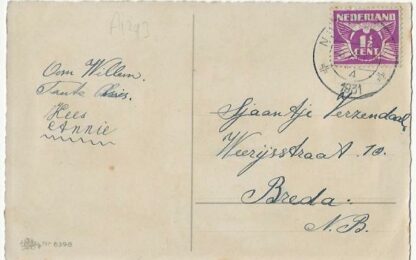 A4293
Oom Willem.
Tante
Kees
Annie
NEDERLAND
1½
CENT
4
1931
Sjaantje Verzendaal
Weerijsstraat 10.
Breda.
N.B.
Nr 6398